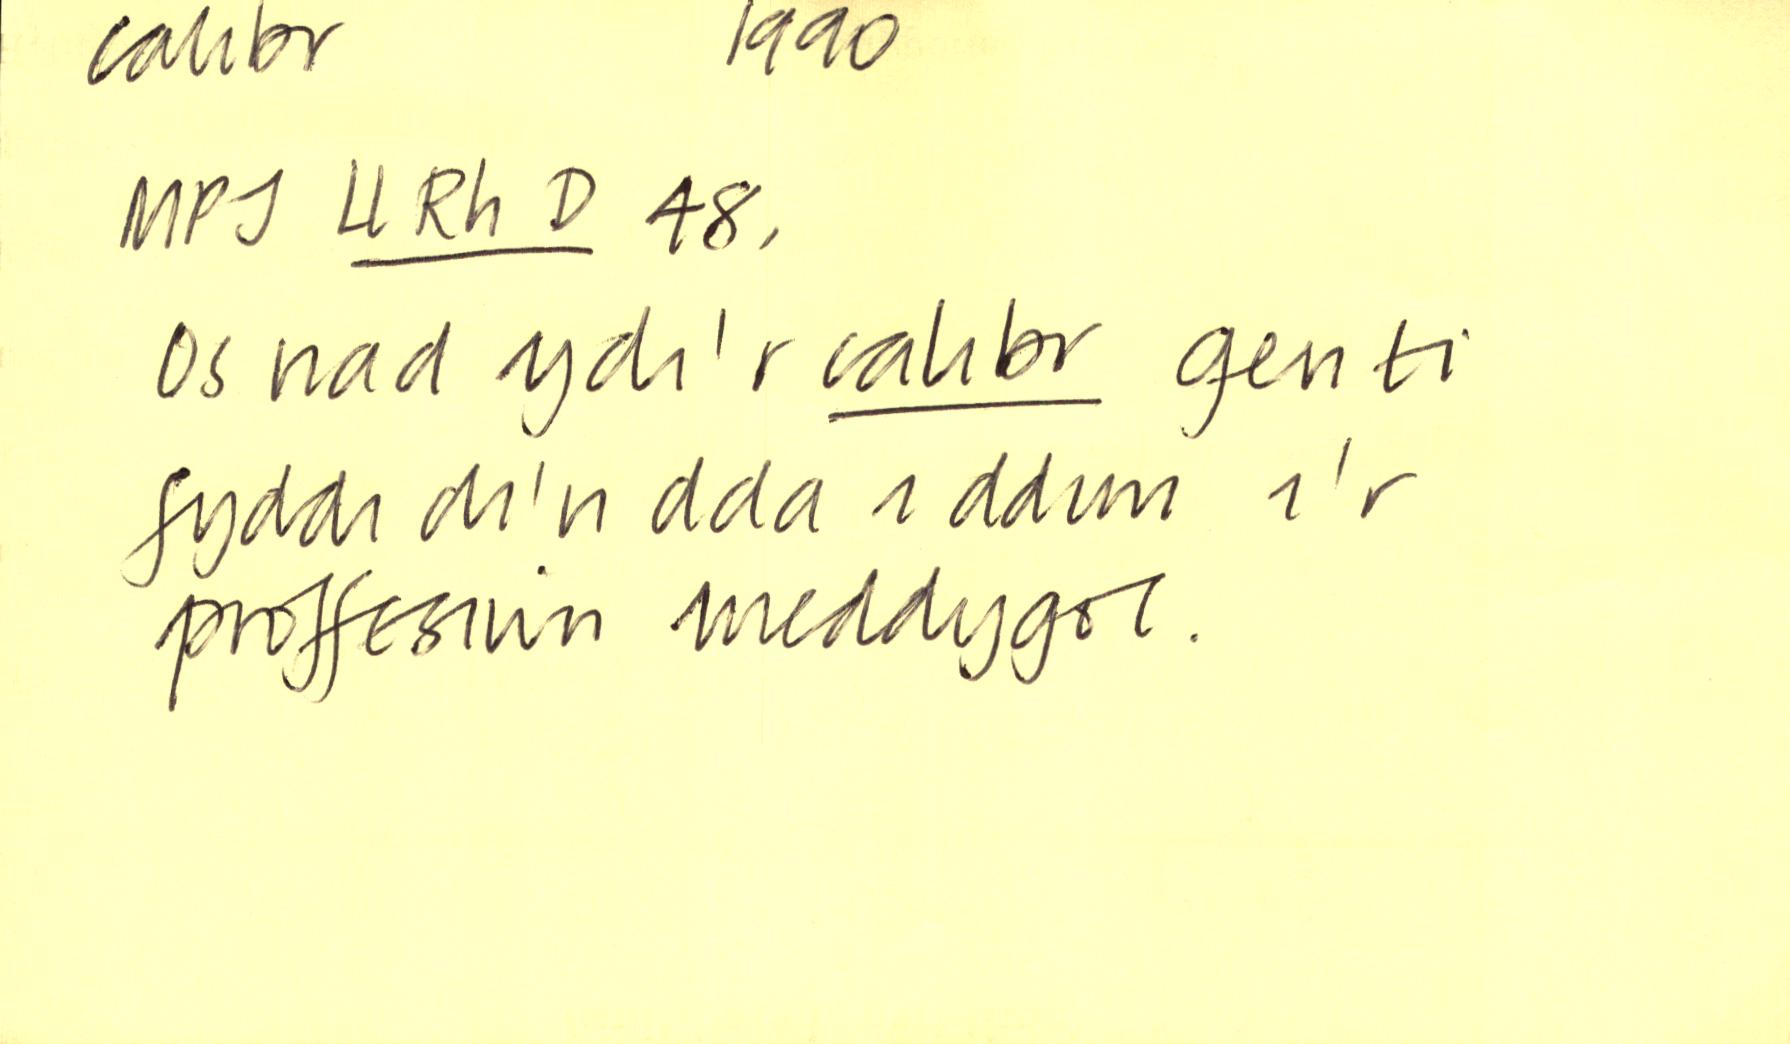 calibr 1990
MPJ Ll Rh D 48,
Os nad ydi'r calibr gen ti
fyddi di'n dda i ddim i'r
proffesiwn meddygol.